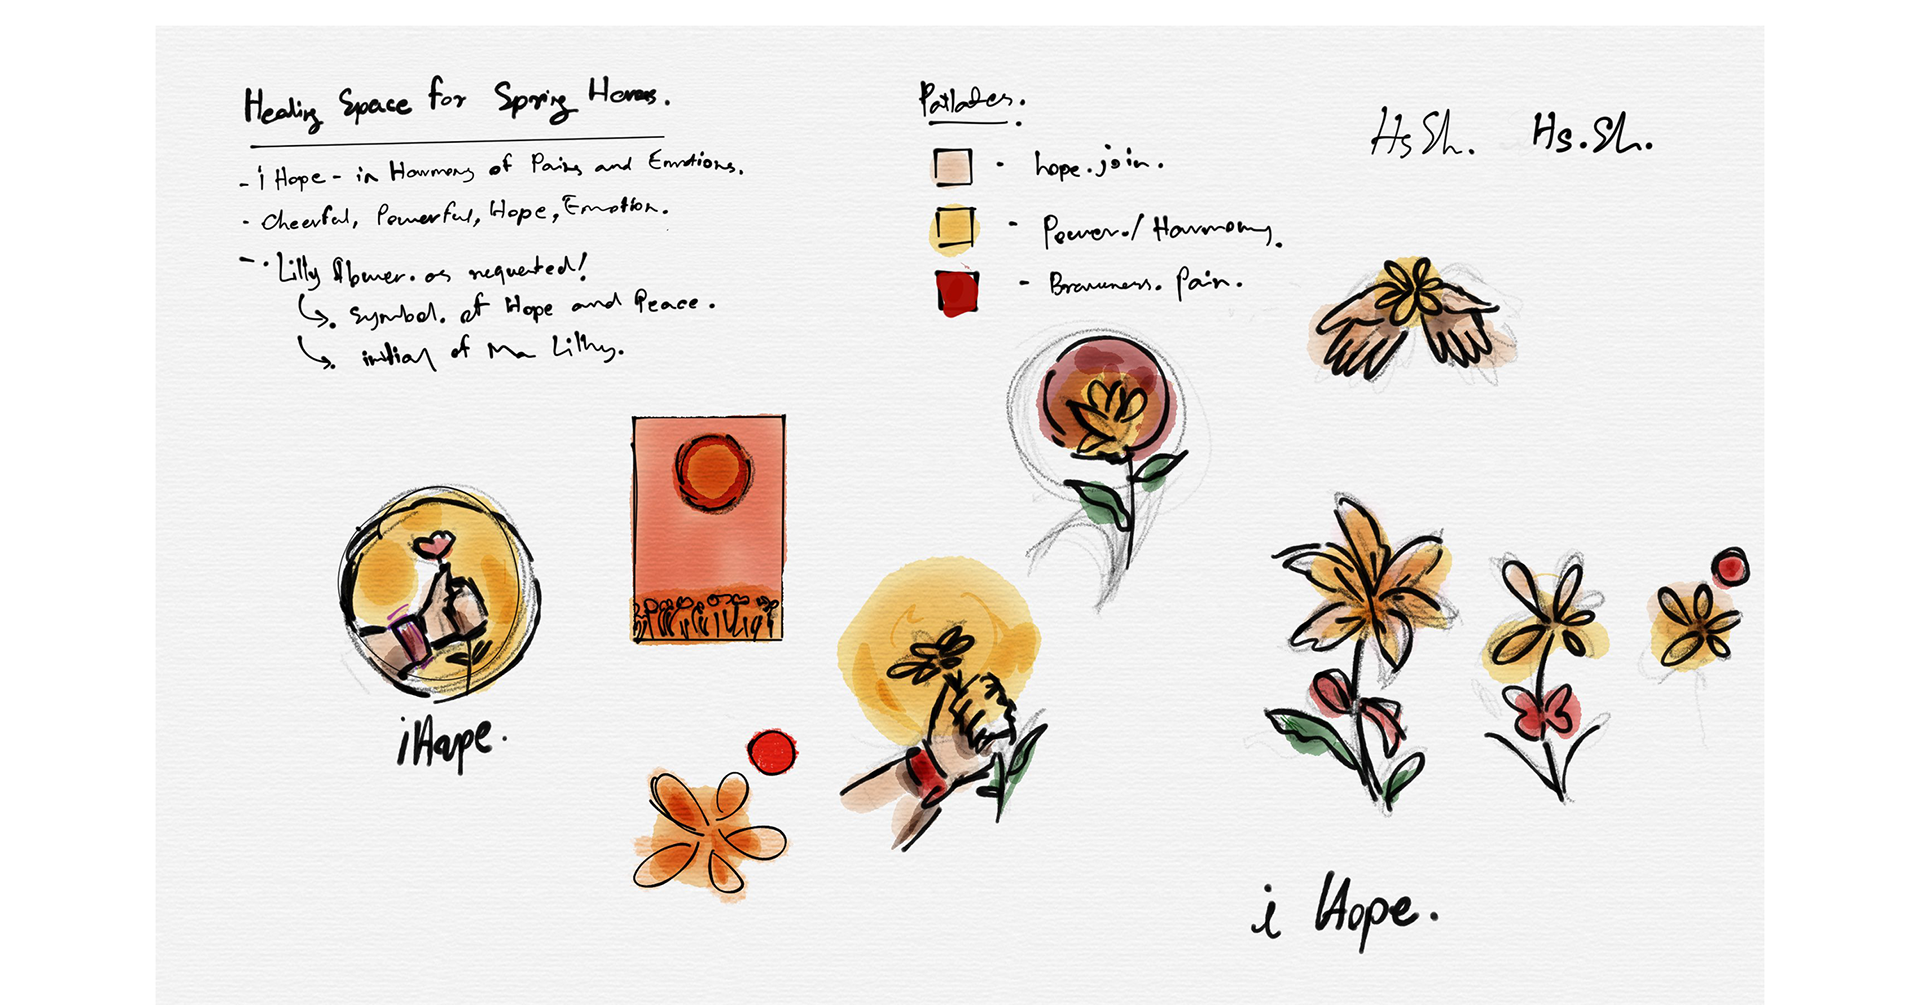 Healing Space for Spring Homes.
- i Hope - in Harmony of Pains and Emotions.
- Cheerful, Powerful, Hope, Emotion.
- . Lilly flower. as requested!
symbol. of Hope and Peace.
initial of Ma Lilly.
Pallates.
- hope. join.
- Power. / Harmony.
- Braveness. Pain.
Hs Sh. Hs. Sh.
i Hope.
i Hope.